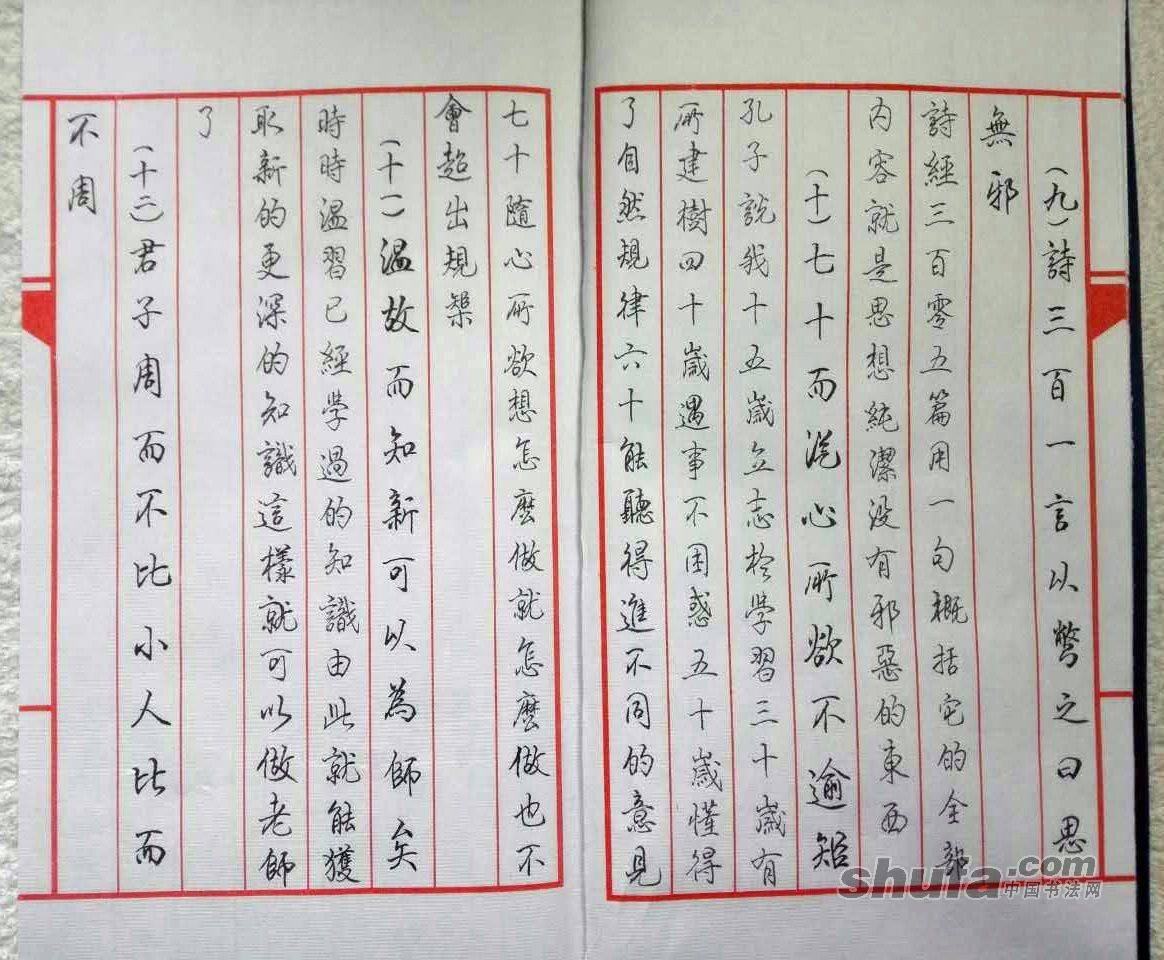 (九)詩三百一言以弊之曰思
無邪
詩經三百零五篇用一句概括它的全部
内容就是思想純潔没有邪惡的東西
(十)七十而從心所欲不逾矩
孔子說我十五歲立志於學習三十歲有
所建樹四十歲遇事不困惑五十歲懂得
了自然規律六十能聽得進不同的意見
七十隨心所欲想怎麽做就怎麽做也不
會超出規榘
(十一)溫故而知新可以為師矣
時時溫習已經學過的知識由此就能獲
取新的更深的知識這樣就可以做老師
了
(十二)君子周而不比小人比而
不周
shufa.com
中国书法网